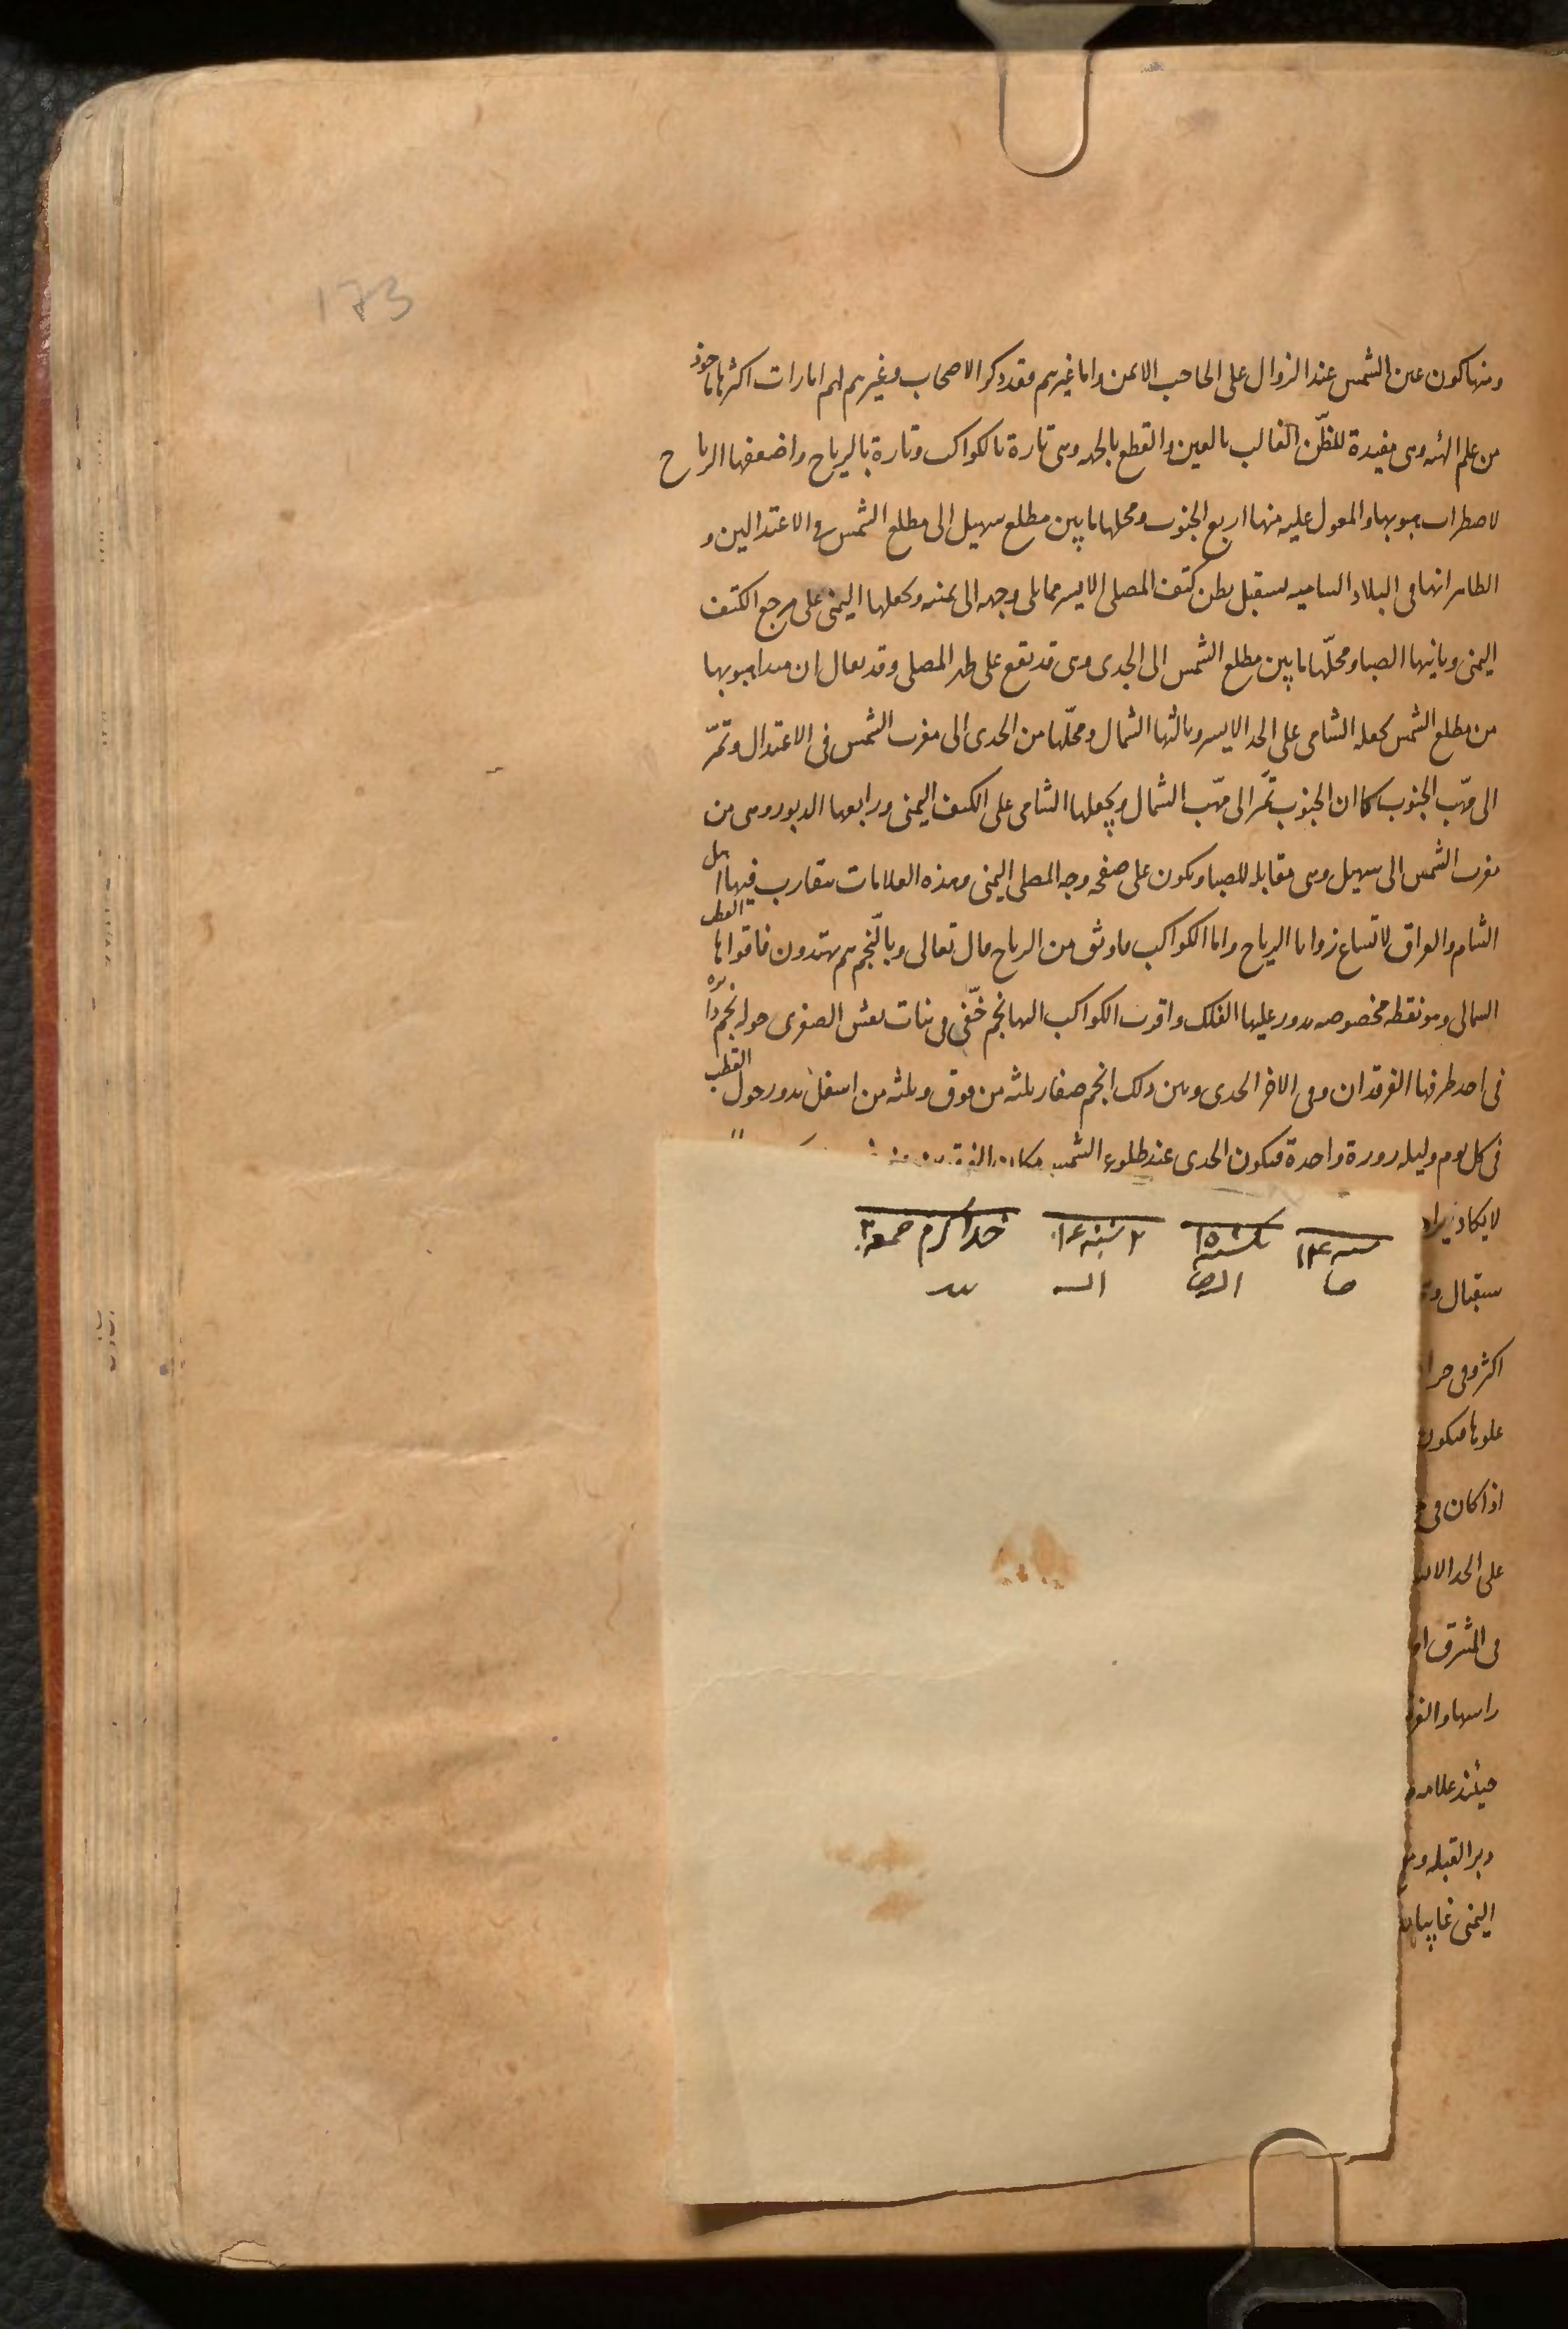 173
ومنها كون عين الشمس عند الزوال على الحاجب الايمن واما غيرهم فقد ذكر الاصحاب وغيرهم لهم امارات اكثرها ماخوذ
من علم الهيئه وهى مفيدة للظّن الغالب بالعين والقطع بالجهه وهى تارة بالكواكب وتارة بالرياح واضعفها الرياح
لاضطراب هبوبها والمعول عليه منها اربع الجنوب ومحلها ما بين مطلع سهيل الى مطلع الشمس فى الاعتدالين و
الظاهر انها فى البلاد الشاميه يستقبل بطن كتف المصلى الايسر مما يلى وجهه الى يمنه وتجعلها اليمنى على مرجع الكتف
اليمنى وثانيها الصبا ومحلّها ما بين مطلع الشمس الى الجدى وهى قد يقع على ظهر المصلى وقد يقال ان مبدا هبوبها
من مطلع الشمس تجعله الشامى على الخد الايسر وثالثها الشمال ومحلّها من الجدى الى مغرب الشمس فى الاعتدال وتمّر
الى مهّب الجنوب كما ان الجنوب تمّر الى مهّب الشمال ويجعلها الشامى على الكتف اليمنى ورابعها الدبور وهى من
مغرب الشمس الى سهيل وهى مقابله للصبا وتكون على صفحه وجه المصلى اليمنى وهذه العلامات يتقارب فيها اهل
الشام والعراق لاتساع زوايا الرياح واما الكواكب فاوثق من الرياح قال تعالى وبالنّجم هم يهتدون فاقواها القطب
الشمالى وهو نقطه مخصوصه يدور عليها الفلك واقرب الكواكب اليها نجم خفّى فى بنات نعش الصغرى حوله انجم دائره
فى احد طرفها الفرقدان وفى الاخر الجدى وبين ذلك انجم صغار ثلثه من فوق وثلثه من اسفل يدور حول القطب
فى كل يوم وليله دورة واحدة فيكون الجدى عند طلوع الشمس مكان الفرقدين
لا يكاد يراه
ستقبال
اكثر وفى حرا
علوها فيكون
اذا كان فى
على الخد الايسر
فى المشرق او
راسها والفر
حينئذ علامه
دبر القبله
اليمنى غاربا
يكشنبه ١٥
٢ شنبه ١٦
خدا كرم جمعه